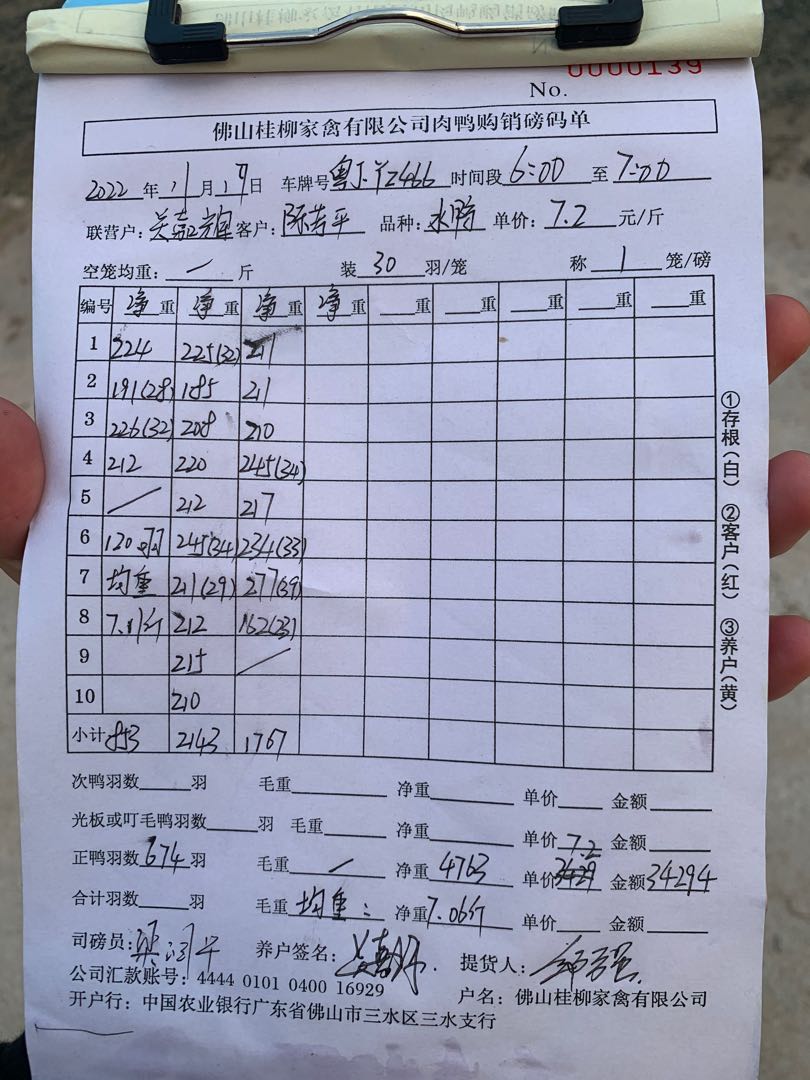 0000139
No.
佛山桂柳家禽有限公司肉鸭购销磅码单
2022 年 11 月 19 日 车牌号 粤 时间段 6:00 至 7:00
联营户: 客户: 品种: 水鸭 单价: 7.2 元/斤
空笼均重: / 斤 装 30 羽/笼 称 1 笼/磅
编号 净 重 净 重 净 重 净 重 重 重 重 重
1 224 225(32) 217
2 191(28) 185 211
3 226(32) 208 210
4 212 220 245(34)
5 / 212 217
6 120羽 245(34) 234(33)
7 均重 211(29) 277(39)
8 7.1斤 212
9 215 /
10 210
小计 853 2143 1767
次鸭羽数 羽 毛重 净重 单价 金额
光板或叮毛鸭羽数 羽 毛重 净重 单价 金额
正鸭羽数 674 羽 毛重 / 净重 4763 单价 7.2 金额 34294
合计羽数 羽 毛重 均重: 净重 7.06斤 单价 金额
司磅员: 养户签名: 提货人:
公司汇款账号: 4444 0101 0400 16929 户名: 佛山桂柳家禽有限公司
开户行: 中国农业银行广东省佛山市三水区三水支行
①存根(白) ②客户(红) ③养户(黄)